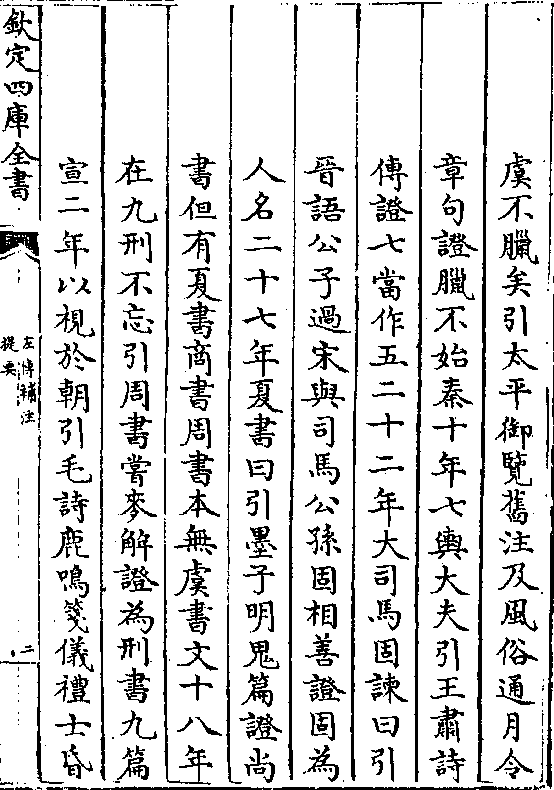 虞不臘矣引太平御覽舊注及風俗通月令
章句證臘不始秦十年七輿大夫引王肅詩
傳證七當作五二十二年大司馬固諫曰引
晉語公子過宋與司馬公孫固相善證固為
人名二十七年夏書曰引墨子明鬼篇證尚
書但有夏書商書周書本無虞書文十八年
在九刑不忘引周書嘗麥解證為刑書九篇
宣二年以視於朝引毛詩鹿鳴箋儀禮士昏
欽定四庫全書
左傳補注
提要
二